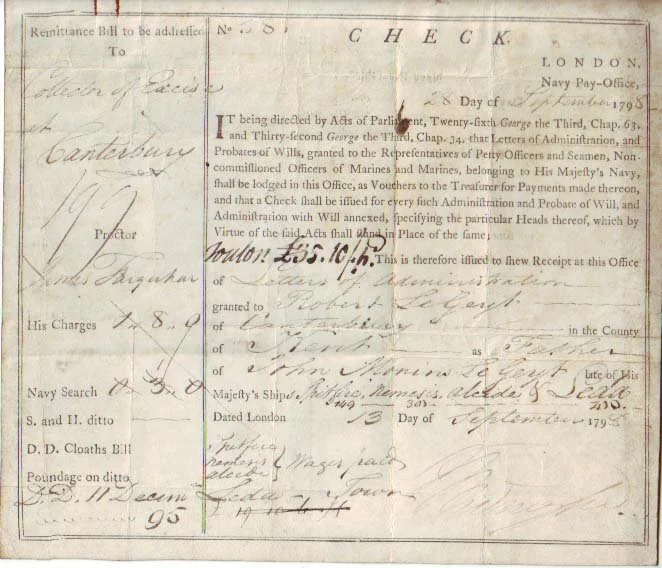 Remittance Bill to be addressed
To
Collector of Excise
at
Canterbury
Proctor
James Farquhar
His Charges 1 . 8 . 9
Navy Search 0 . 3 . 0
S. and H. ditto
D. D. Cloaths Bill
Poundage on ditto
D. D. 11 Decem
95
No
CHECK.
LONDON,
Navy Pay-Office,
28 Day of September 1795
IT being directed by Acts of Parliament, Twenty-sixth George the Third, Chap. 63,
and Thirty-second George the Third, Chap. 34, that Letters of Administration, and
Probates of Wills, granted to the Representatives of Petty Officers and Seamen, Non-
commissioned Officers of Marines and Marines, belonging to His Majesty's Navy,
shall be lodged in this Office, as Vouchers to the Treasurer for Payments made thereon,
and that a Check shall be issued for every such Administration and Probate of Will, and
Administration with Will annexed, specifying the particular Heads thereof, which by
Virtue of the said Acts shall stand in Place of the same;
Toulon £55.10/ This is therefore issued to shew Receipt at this Office
of Letters of Administration
granted to Robert Le Geyt
of Canterbury in the County
of Kent as Father
of John Monins Le Geyt late of His
Majesty's Ships Spitfire, Nemesis, Alcide & Leda
149
Dated London 13 Day of September 1795
Spitfire
Nemesis
Alcide
Wages paid
Leda Town